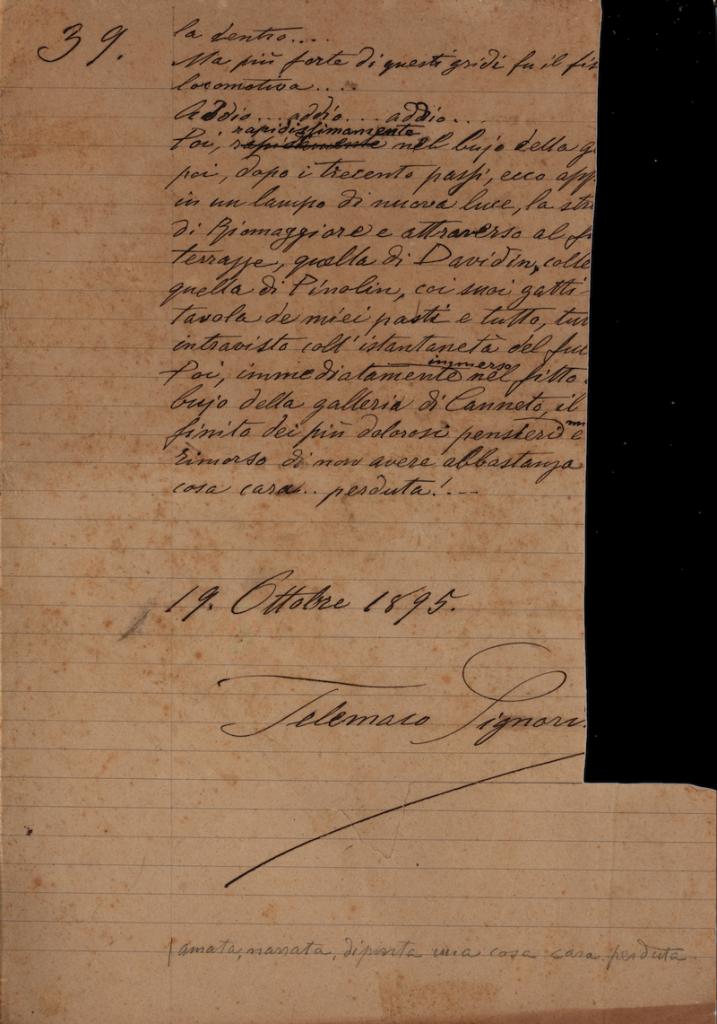 39.
la dentro....
Ma più forte di questi gridi fu il fis
locomotiva....
Addio... addio... addio...
rapidissimamente
Poi, rapidamente nel bujo della g
poi, dopo i trecento passi, ecco app
in un lampo di nuova luce, la str
di Riomaggiore e attraverso al fi
terrazze, quella di Davidin, colle
quella di Pinolin, coi suoi gatti
tavola de miei pasti e tutto, tut
intravisto coll'istantaneta del ful
immerso
Poi, immediatamente nel fitto
bujo della galleria di Canneto, il
finito dei più dolorosi pensieri e
rimorso di non avere abbastanza
cosa cara.. perduta!...
19. Ottobre 1895.
Telemaco Signori
amata, narrata, dipinta una cosa cara perduta